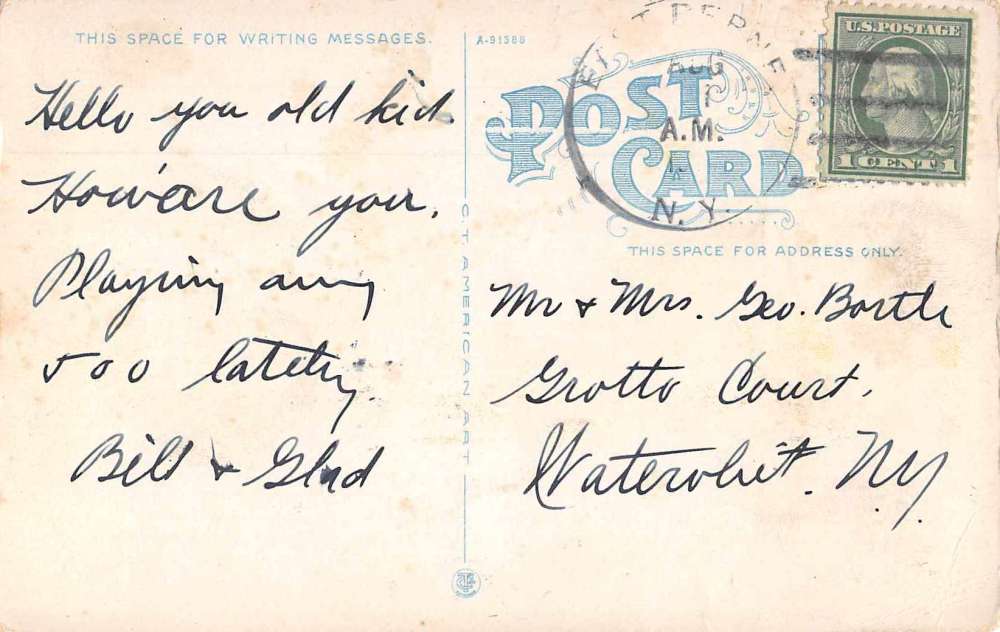 THIS SPACE FOR WRITING MESSAGES.
Hello you old kid
How are you.
Playing any
500 lately.
Bill & Glad
C.T. AMERICAN ART
A-91388
POST
CARD
AUG
1
A.M.
N.Y.
U.S. POSTAGE
1 CENT 1
THIS SPACE FOR ADDRESS ONLY.
Mr & Mrs. Geo. Bartle
Grotto Court.
Watervliet. NY